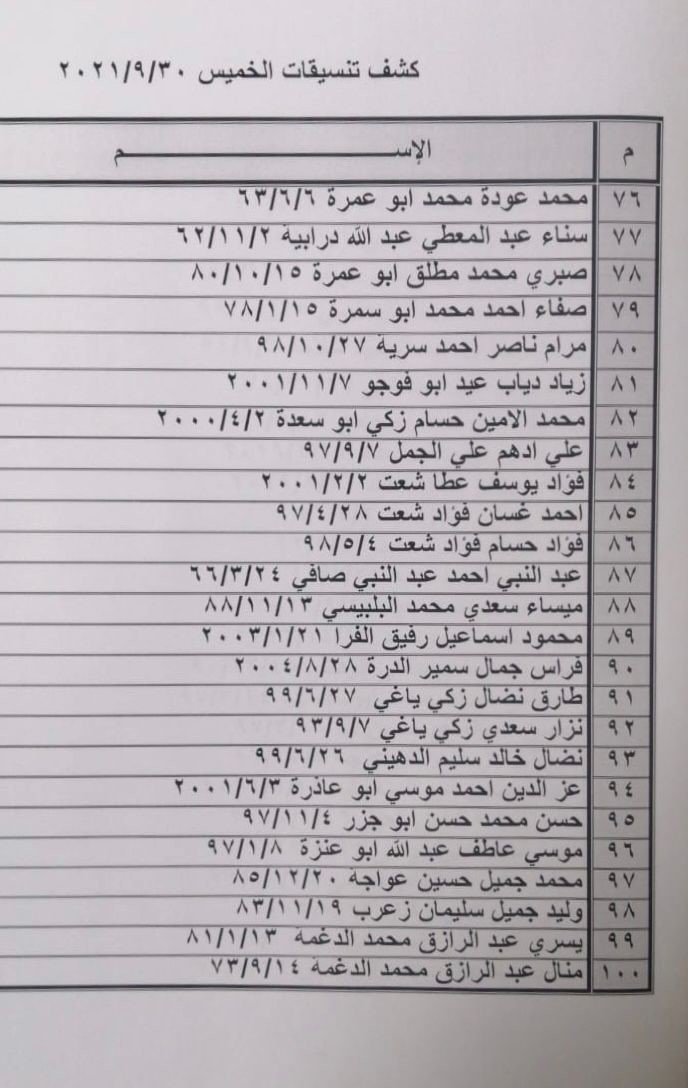 كشف تنسيقات الخميس ٢٠٢١/٩/٣٠
م الإســـــــــــــــــــم
٧٦ محمد عودة محمد ابو عمرة ٦٣/٦/٦
٧٧ سناء عبد المعطي عبد الله درابية ٦٢/١١/٢
٧٨ صبري محمد مطلق ابو عمرة ٨٠/١٠/١٥
٧٩ صفاء احمد محمد ابو سمرة ٧٨/١/١٥
٨٠ مرام ناصر احمد سرية ٩٨/١٠/٢٧
٨١ زياد دياب عيد ابو فوجو ٢٠٠١/١١/٧
٨٢ محمد الامين حسام زكي ابو سعدة ٢٠٠٠/٤/٢
٨٣ علي ادهم علي الجمل ٩٧/٩/٧
٨٤ فؤاد يوسف عطا شعت ٢٠٠١/٢/٢
٨٥ احمد غسان فؤاد شعت ٩٧/٤/٢٨
٨٦ فؤاد حسام فؤاد شعت ٩٨/٥/٤
٨٧ عبد النبي احمد عبد النبي صافي ٦٦/٣/٢٤
٨٨ ميساء سعدي محمد البلبيسي ٨٨/١١/١٣
٨٩ محمود اسماعيل رفيق الفرا ٢٠٠٣/١/٢١
٩٠ فراس جمال سمير الدرة ٢٠٠٤/٨/٢٨
٩١ طارق نضال زكي ياغي ٩٩/٦/٢٧
٩٢ نزار سعدي زكي ياغي ٩٣/٩/٧
٩٣ نضال خالد سليم الدهيني ٩٩/٦/٢٦
٩٤ عز الدين احمد موسي ابو عاذرة ٢٠٠١/٦/٣
٩٥ حسن محمد حسن ابو جزر ٩٧/١١/٤
٩٦ موسي عاطف عبد الله ابو عنزة ٩٧/١/٨
٩٧ محمد جميل حسين عواجة ٨٥/١٢/٢٠
٩٨ وليد جميل سليمان زعرب ٨٣/١١/١٩
٩٩ يسري عبد الرازق محمد الدغمة ٨١/١/١٣
١٠٠ منال عبد الرازق محمد الدغمة ٧٣/٩/١٤